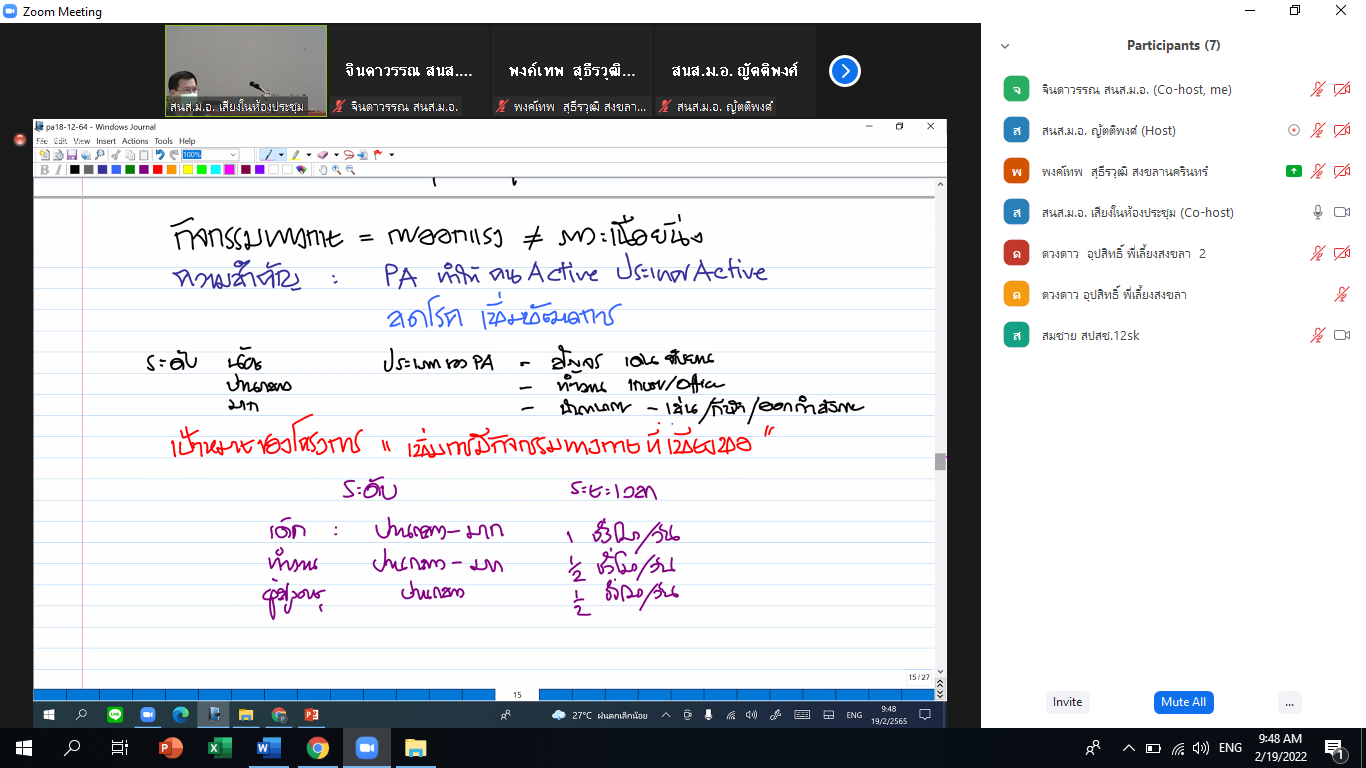 Zoom Meeting
จินดาวรรณ สนส.... พงค์เทพ สุธีรวุฒิ... สนส.ม.อ. ญัตติพงศ์
สนส.ม.อ. เสียงในห้องประชุม จินดาวรรณ สนส.ม.อ. พงค์เทพ สุธีรวุฒิ สงขลา... สนส.ม.อ. ญัตติพงศ์
pa18-12-64 - Windows Journal
File Edit View Insert Actions Tools Help
100%
B I
กิจกรรมทางกาย = การออกแรง ≠ ภาวะเนือยนิ่ง
ความสำคัญ : PA ทำให้ คน Active ประเทศ Active
ลดโรค เพิ่มพัฒนาการ
ระดับ น้อย ประเภทของ PA - สัญจร เดิน จักรยาน
ปานกลาง - ทำงาน เกษตร/Office
มาก - นันทนาการ - เล่น/กีฬา/ออกกำลังกาย
เป้าหมายของโครงการ " เพิ่มการมีกิจกรรมทางกายที่เพียงพอ "
ระดับ ระยะเวลา
เด็ก : ปานกลาง - มาก 1 ชั่วโมง/วัน
ทำงาน ปานกลาง - มาก 1/2 ชั่วโมง/วัน
ผู้สูงอายุ ปานกลาง 1/2 ชั่วโมง/วัน
15 / 27
15
27°C ฝนตกเล็กน้อย ENG 9:48
19/2/2565
Participants (7)
จ จินดาวรรณ สนส.ม.อ. (Co-host, me)
ส สนส.ม.อ. ญัตติพงศ์ (Host)
พ พงค์เทพ สุธีรวุฒิ สงขลานครินทร์
ส สนส.ม.อ. เสียงในห้องประชุม (Co-host)
ด ดวงดาว อุปสิทธิ์ พี่เลี้ยงสงขลา 2
ด ดวงดาว อุปสิทธิ์ พี่เลี้ยงสงขลา
ส สมชาย สปสช.12sk
Invite Mute All ...
ENG 9:48 AM
2/19/2022
1